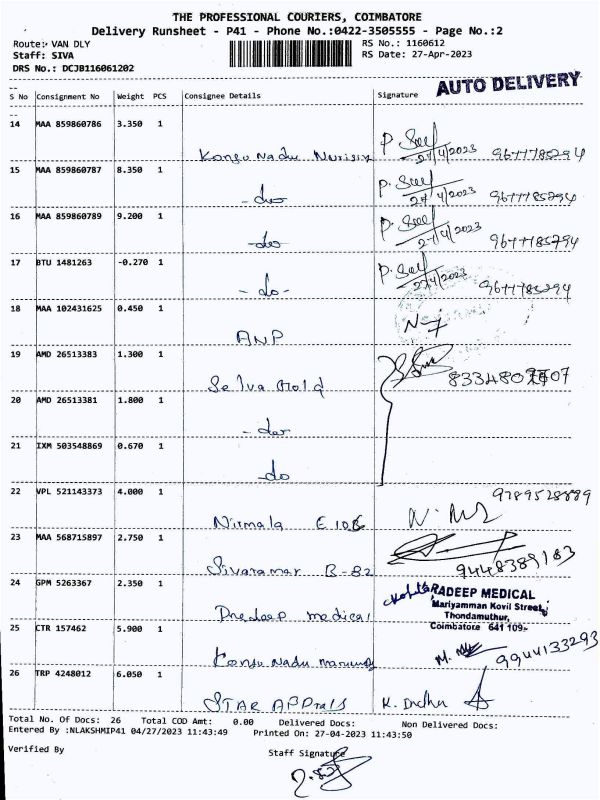 THE PROFESSIONAL COURIERS, COIMBATORE
Delivery Runsheet - P41 - Phone No.:0422-3505555 - Page No.:2
Route: VAN DLY RS No.: 1160612
Staff: SIVA RS Date: 27-Apr-2023
DRS No.: DCJB116061202
AUTO DELIVERY
S No Consignment No Weight PCS Consignee Details Signature
14 MAA 859860786 3.350 1
Kongu Nadu 27/4/2023 9677785294
15 MAA 859860787 8.350 1
-do- 27/4/2023 9677785294
16 MAA 859860789 9.200 1
-do- 27/4/2023 9677785294
17 BTU 1481263 -0.270 1
-do- 27/4/2023 9677785294
18 MAA 102431625 0.450 1
ANP N-7
19 AMD 26513383 1.300 1
Selva Gold
20 AMD 26513381 1.800 1
-do-
21 IXM 503548869 0.670 1
-do
22 VPL 521143373 4.000 1 9789528889
Nirmala E 10B
23 MAA 568715897 2.750 1
Sivaraman B-82 9448389183
24 GPM 5263367 2.350 1
RADEEP MEDICAL
Mariyamman Kovil Street,
Thondamuthur,
Coimbatore 641 109.
Pradeep medical
25 CTR 157462 5.900 1
Kongu Nadu 9944133293
26 TRP 4248012 6.050 1
STAR
Total No. Of Docs: 26 Total COD Amt: 0.00 Delivered Docs: Non Delivered Docs:
Entered By :NLAKSHMIP41 04/27/2023 11:43:49 Printed On: 27-04-2023 11:43:50
Verified By Staff Signature